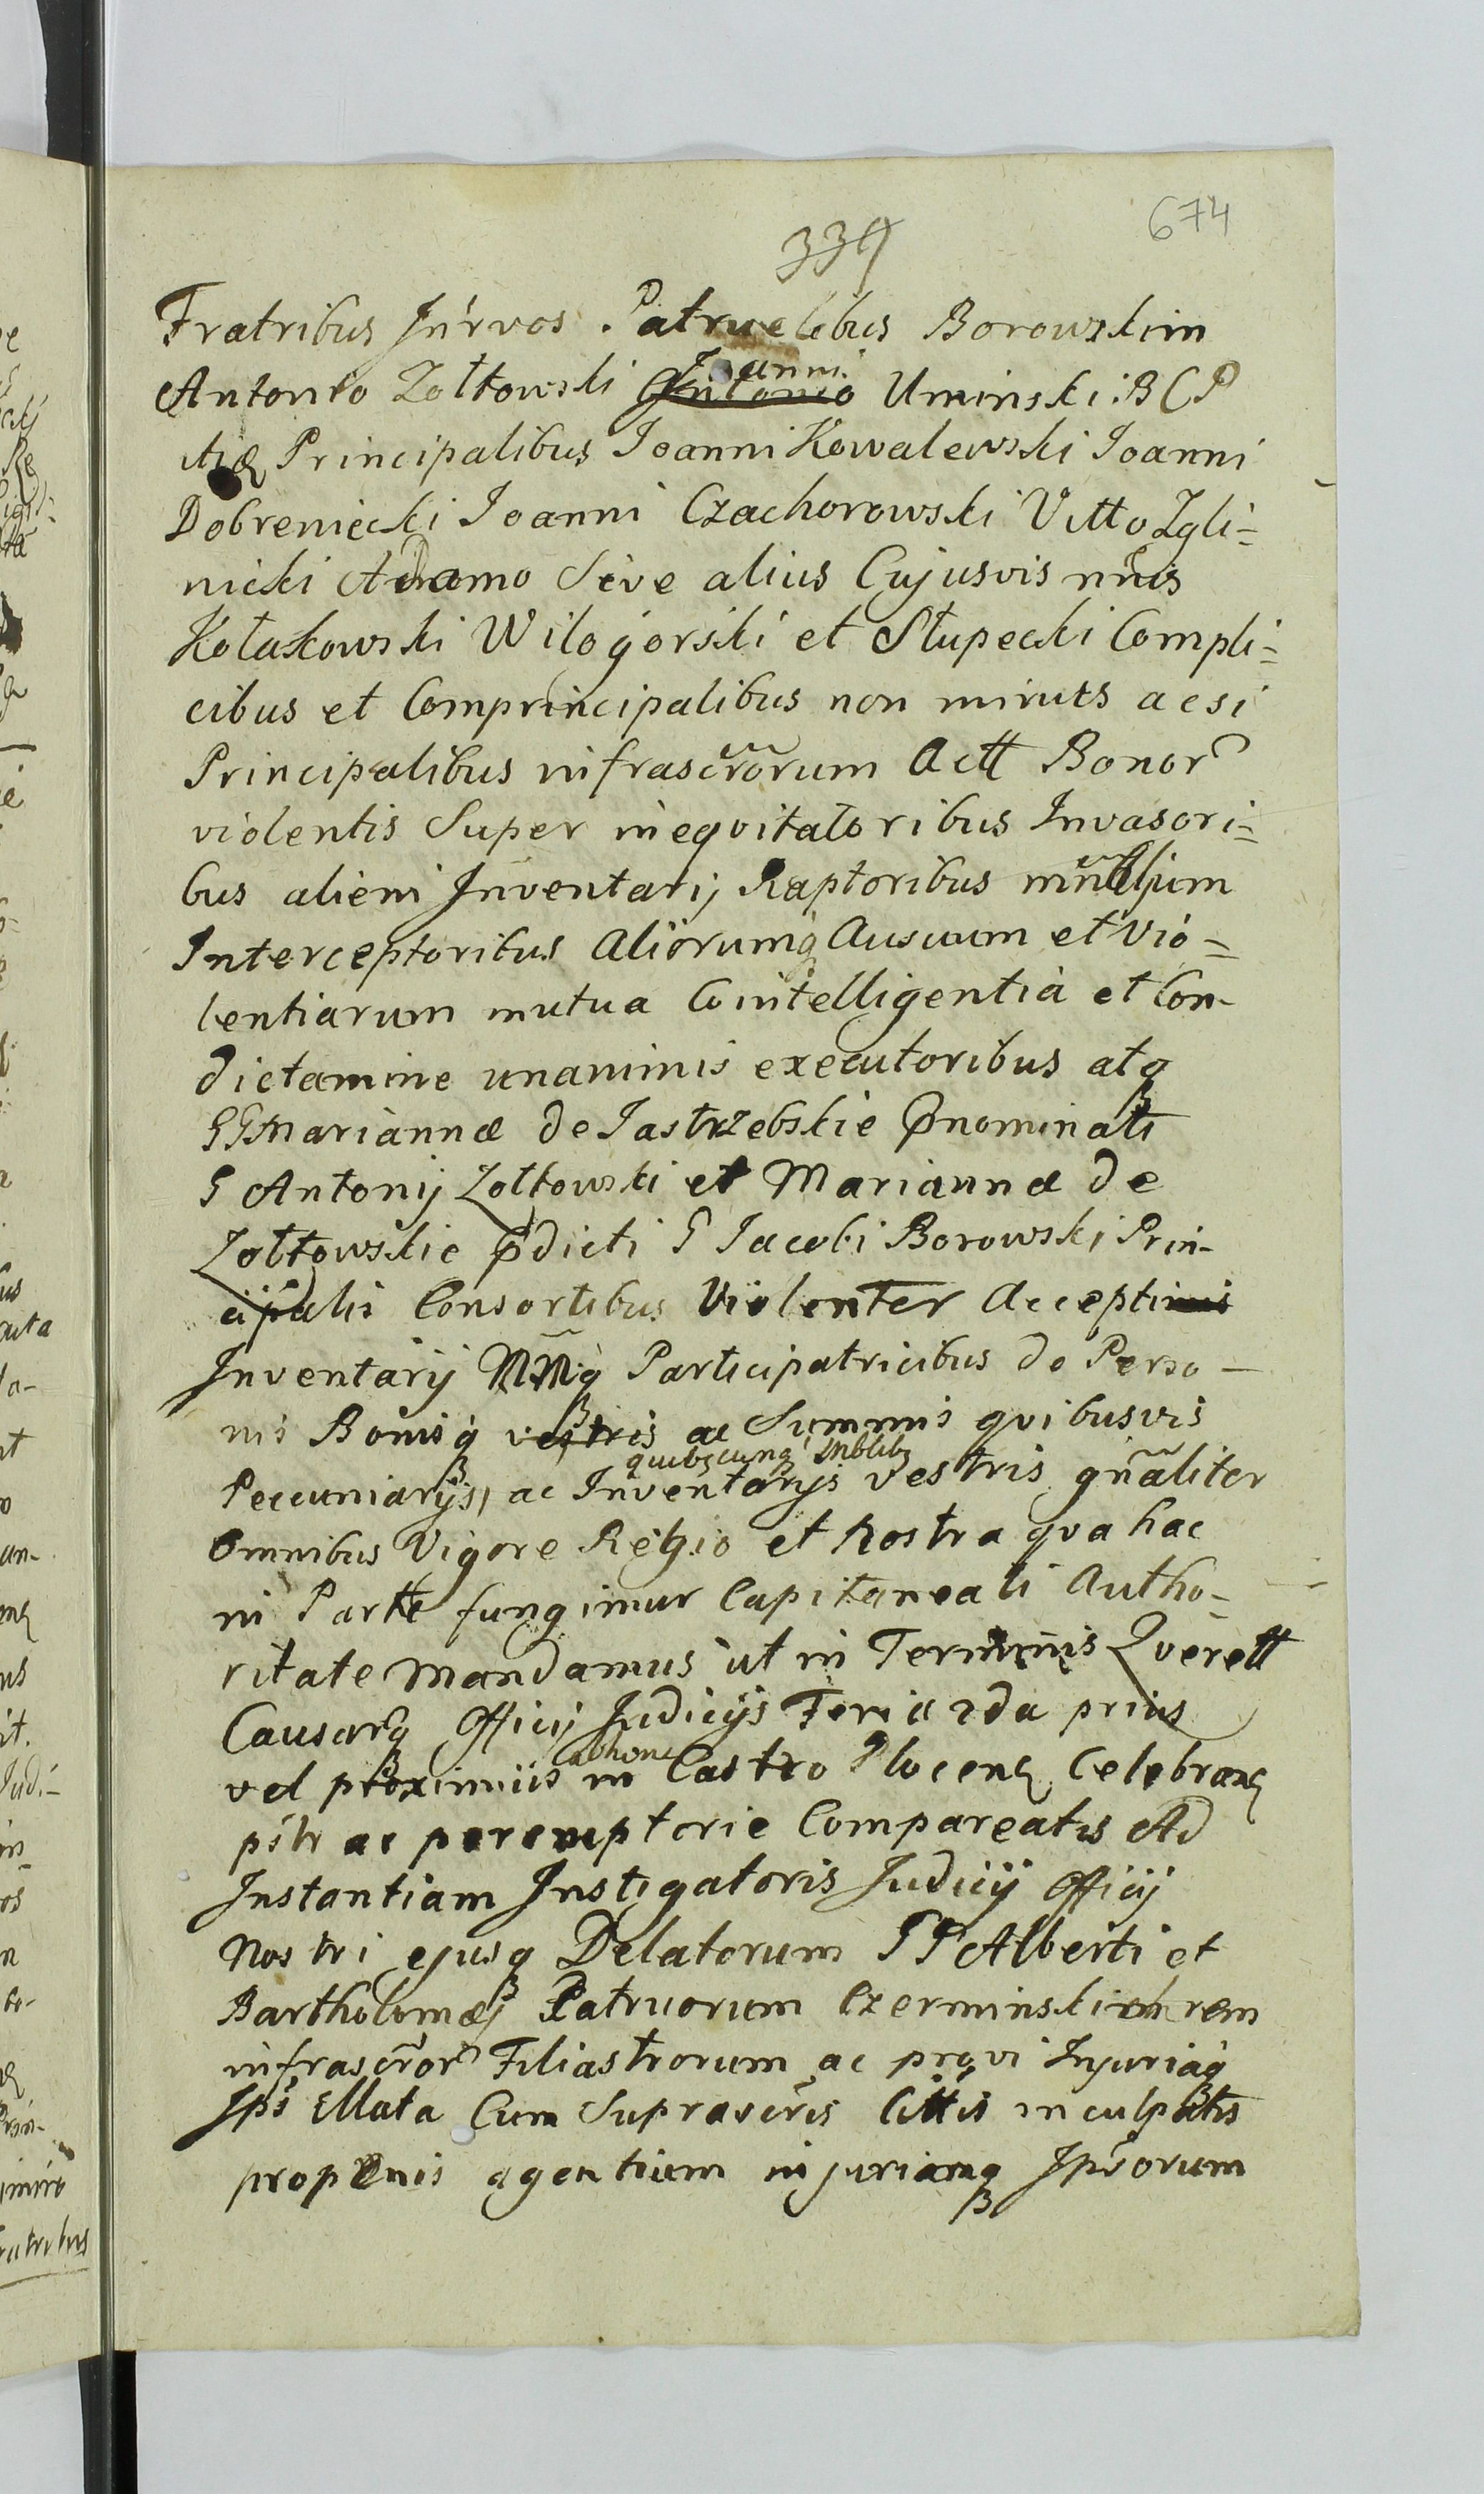 674
339
Fratribus Inrvos Patruelibus Borowskim
Antonio Zołtowski Antonio Joanni Uminski B C P
Principalibus Joanni Kowalewski Joanni
Dobreniecki Joanni Czachorowski Vitto Zgli=
nicki Adamo Sive alius Cujusvis nñis
Kołakowski Wilogorski et Słupecki Compli=
cibus et Comprincipalibus non minus acsi
Principalibus infrascrorum Actt Bonor
violentis Super inequitatoribus Invasori=
bus alieni Inventarij Raptoribus
Interceptoribus Aliorumq Ausuum et Vio=
lentiarum mutua Cointelligentia et Con-
dictamine unanimis executoribus atq
GG Mariannæ de Jastrzebskie Pnominati
G Antonij Zołtowski et Mariannæ de
Zołtowskie pdicti G Jacobi Borowski Prin-
cipalis Consortibus Violenter Accepti
Inventarij MMq Participatricibus de Perso-
nis Bonisq vestris ac Summis quibusvis
quibscunq Mblibs
Pecuniarijs, ac Inventarijs vestris gñaliter
Omnibus Vigore Regio et Nostra qva hac
in Parte fungimur Capitaneali Autho=
ritate Mandamus ut in Terminis Querett
Causarq Officij Judicijs Feria 2da prius
vel proximiis abhinc in Castro Plocens Celebrans
psltr ac peremptorie Compareatis Ad
Instantiam Instigatoris Judicij Officij
Nostri ejusq Delatorum GG Alberti et
Bartholomæj Patruorum Czerminskich rem
infrascror Filiastrorum ac prqvi Injuriaq
Ips Illata Cum Suprascris Cittis inculpatis
propenis agentium injuriamq Ipsorum